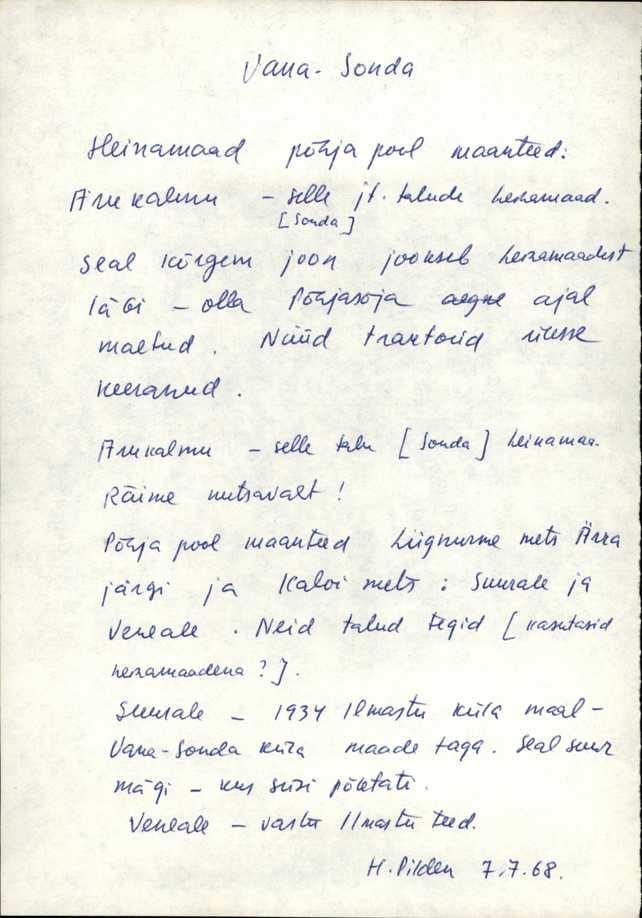 Vana-Sonda
Heinamaad põhja pool maanteed:
Arukalmu - selle jt. talude heinamaad.
[Sonda]
Seal kõrgem joon jookseb heinamaadest
läbi - olla Põhjasõja aegne ajal
maetud. Nüüd traktorid sisse
keeranud.
Arukalmu - selle talu [Sonda] heinamaa.
Räime
Põhja pool maanteed Liignurme mets Ärra
järgi ja Kalvi mets: Suurale ja
Veneale. Neid talud tegid [kasutasid
heinamaadena?].
Suurale - 1934 Ilmastu küla maal -
Vana-Sonda küla maade taga. Seal suur
mägi - kus süsi põletati.
Veneale - vastu Ilmastu teed.
H. Pilden 7.7.68.